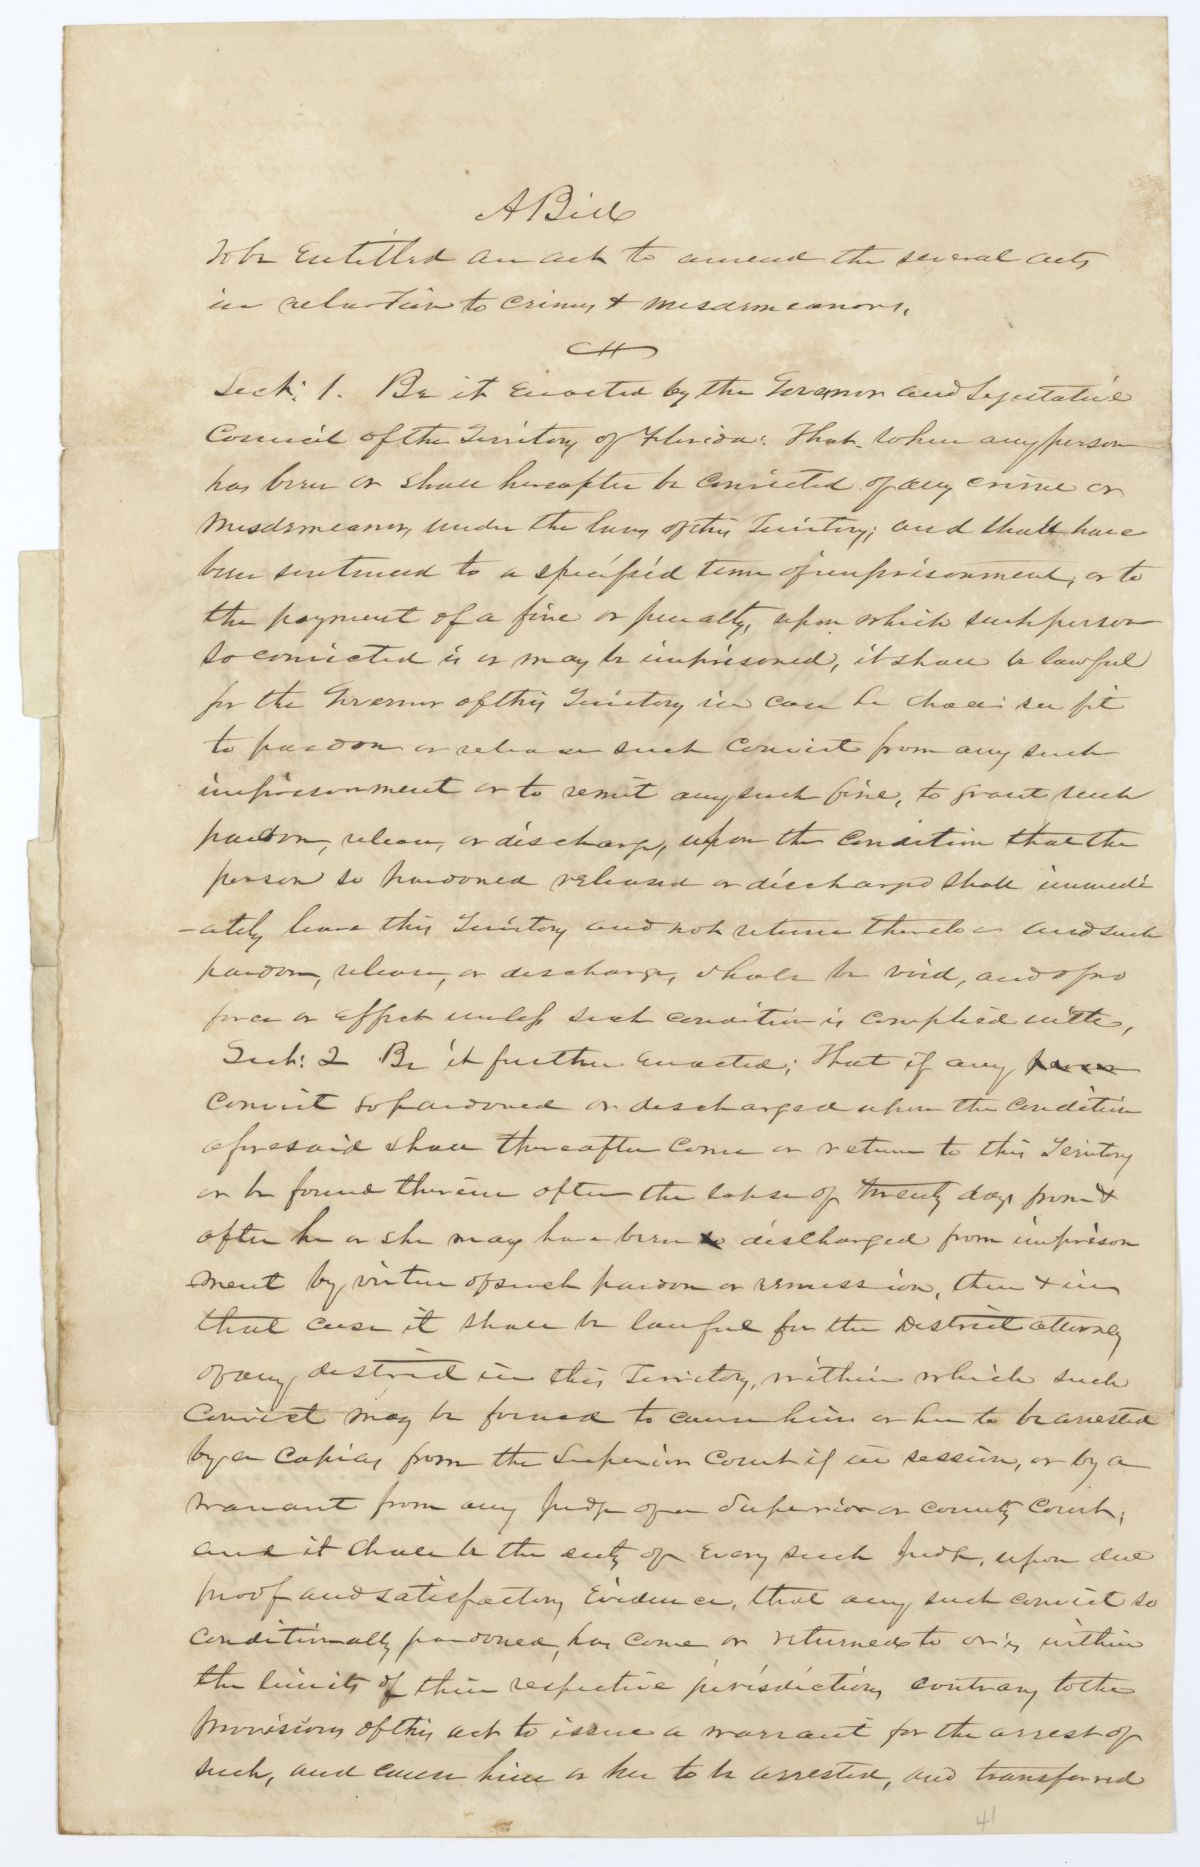 A Bill
To be Entitled an act to amend the several acts
in relation to crimes & misdemeanors.
Sect: 1. Be it Enacted by the Governor and Legislative
Council of the Territory of Florida: That when any person
has been or shall hereafter be Convicted of any crime or
Misdemeanor, under the laws of this Territory; and shall have
been sentenced to a specified term of imprisonment, or to
the payment of a fine or penalty, upon which such person
so convicted is or may be imprisoned, it shall be lawful
for the Governor of this Territory in case he shall see fit
to pardon or release such Convict from any such
imprisonment or to remit any such fine, to grant such
pardon, release, or discharge, upon the Condition that the
person so pardoned released or discharged shall immedi
-ately leave this Territory and not return thereto and such
pardon, release, or discharge, shall be void, and of no
force or effect unless such condition is complied with,
Sect: 2 Be it further enacted; That if any
Convict so pardoned or discharged upon the condition
aforesaid shall thereafter come or return to this Territory
or be found therein after the lapse of twenty days from &
after he or she may have been discharged from imprison
ment by virtue of such pardon or remission, then & in
that case it shall be lawful for the District attorney
of any district in this Territory, within which such
Convict may be found to cause him or her to be arrested
by a Capias from the Superior Court if in session, or by a
warrant from any Judge of a Superior or County Court;
and it shall be the duty of Every such Judge, upon due
proof and satisfactory Evidence, that any such convict so
conditionally pardoned, has come or returned to or is within
the limits of their respective jurisdictions contrary to the
provisions of this act to issue a warrant for the arrest of
such, and cause him or her to be arrested, and transferred
41